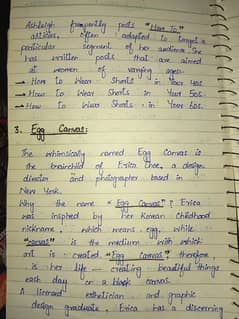 Ashleigh frequently posts "How To"
articles, often adapted to target a
particular segment of her audience. She
has written posts that are aimed
at women of varying ages:
→ How to Wear Shorts in Your 40s
→ How to Wear Shorts in Your 50s
→ How to Wear Shorts in Your 60s.
3. Egg Canvas:
The whimsically named Egg Canvas is
the brainchild of Erica Choi, a design
director and photographer based in
New York.
Why the name "Egg Canvas"? Erica
was inspired by her Korean childhood
nickname, which means egg, while
"canvas" is the medium with which
art is created. "Egg Canvas" therefore,
is her life — creating beautiful things
each day on a blank canvas.
A licensed esthetician and graphic
design graduate, Erica has a discerning